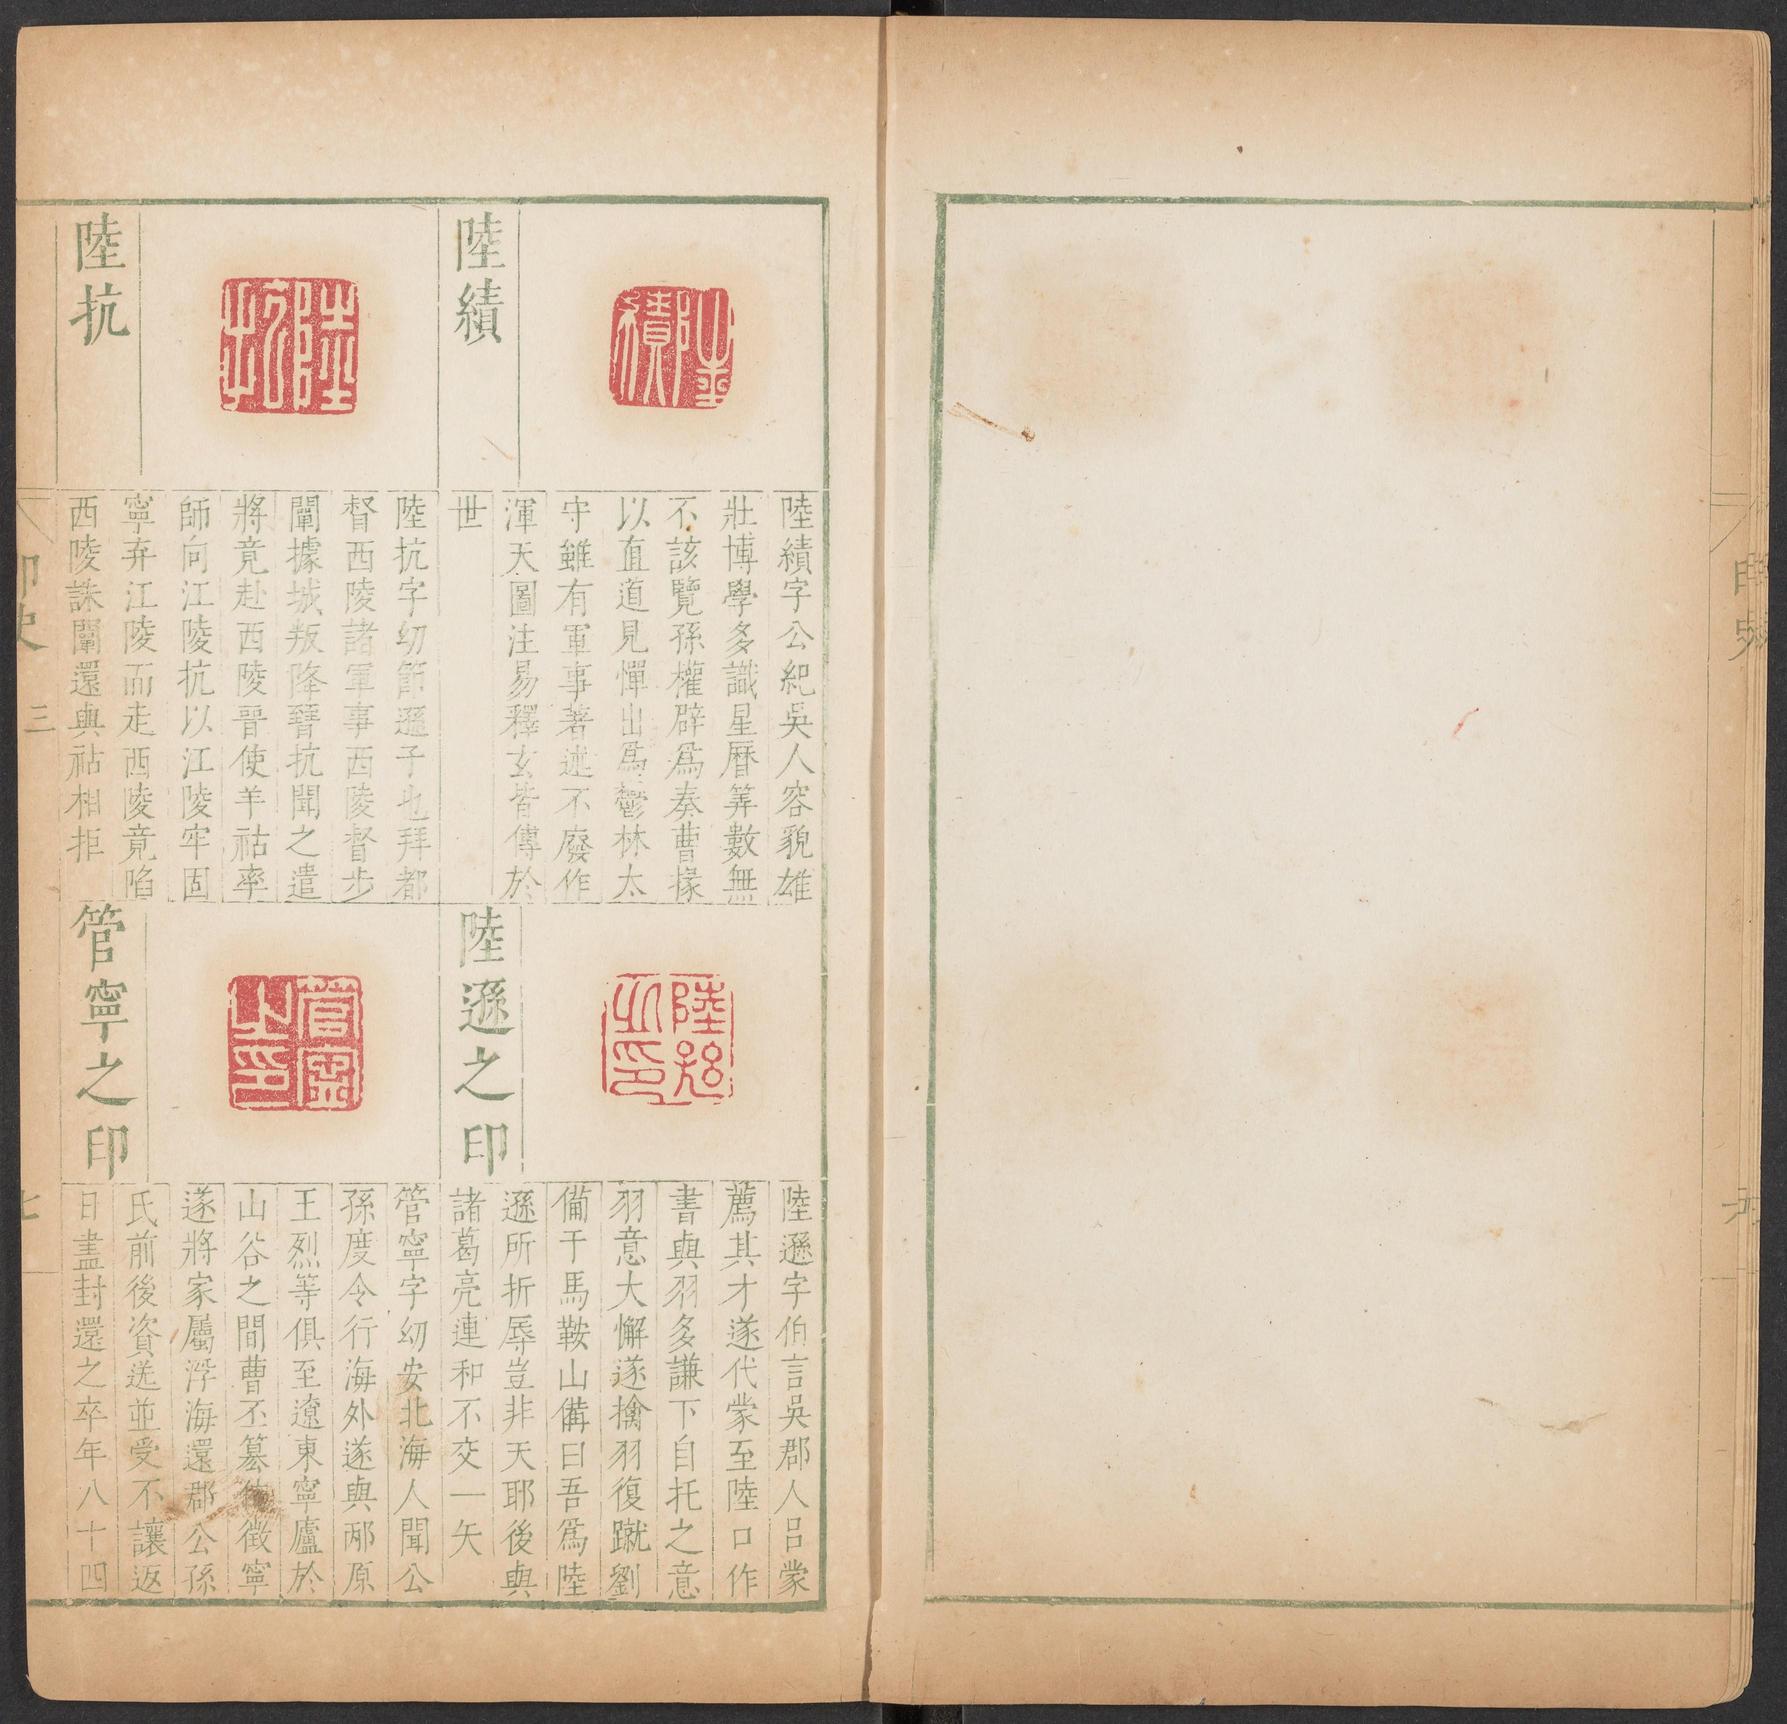 陸績
陸績字公紀吳人容貌雄
壯博學多識星曆筭數無
不該覽孫權辟為奏曹掾
以直道見憚出為鬱林太
守雖有軍事著述不廢作
渾天圖注易釋玄皆傳於
世
陸抗
陸抗字幼節遜子也拜都
督西陵諸軍事西陵督步
闡據城叛降晉抗聞之遣
將竟赴西陵晉使羊祜率
師向江陵抗以江陵牢固
寧弃江陵而走西陵竟陷
西陵誅闡還與祜相拒
陸遜之印
陸遜字伯言吳郡人呂蒙
薦其才遂代蒙至陸口作
書與羽多謙下自托之意
羽意大懈遂擒羽復蹴劉
備于馬鞍山備曰吾為陸
遜所折辱豈非天耶後與
諸葛亮連和不交一矢
管寧之印
管寧字幼安北海人聞公
孫度令行海外遂與邴原
王烈等俱至遼東寧廬於
山谷之間曹丕篡位徵寧
遂將家屬浮海還郡公孫
氏前後資送並受不讓返
日盡封還之卒年八十四
印史
三
七